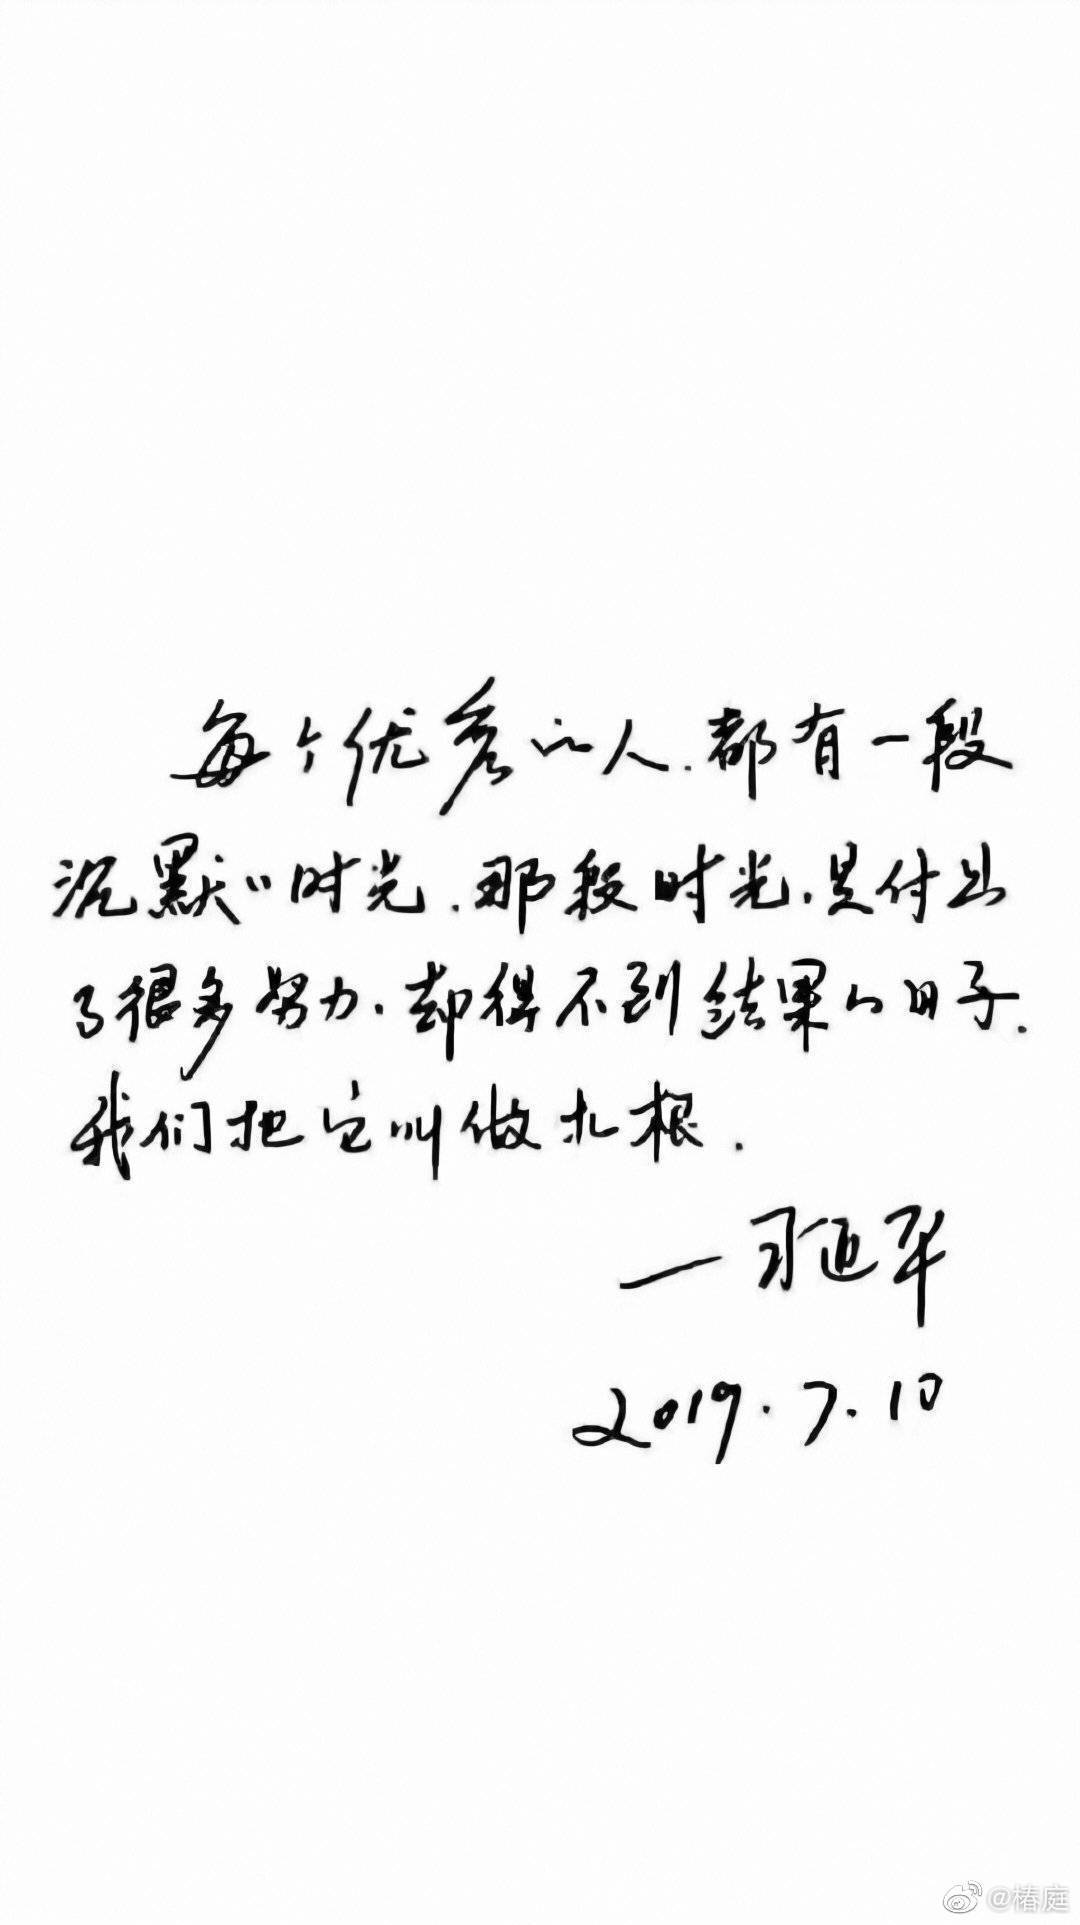 每个优秀的人.都有一段
沉默的时光.那段时光.是付出
了很多努力.却得不到结果的日子.
我们把它叫做扎根.
—习近平
2019.7.10
@椿庭